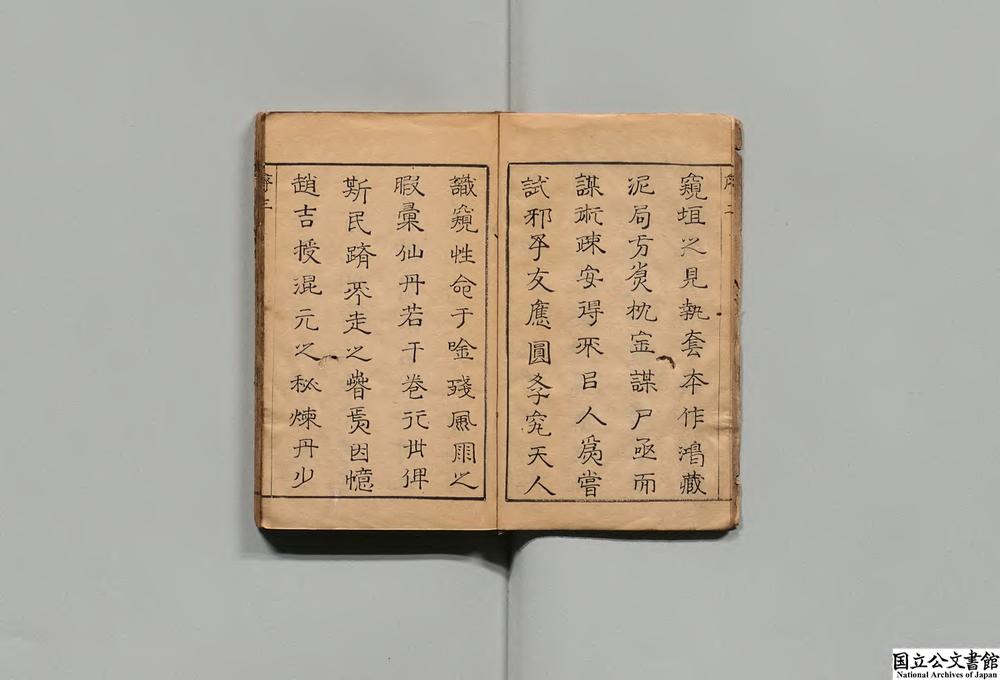 序二
窺垣之見執套本作鴻藏
泥局方爲枕宝謀尸亟而
謀術疎安得不以人爲嘗
試邪予友應圓孝究天人
識窺性命于唫殘風雨之
暇彙仙丹若干卷行世俾
斯民躋不走之眷焉因憶
趙吉授混元之秘煉丹少
序三
国立公文書館
National Archives of Japan